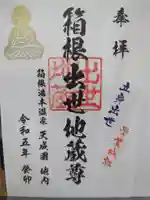 奉拝
箱根出世地蔵尊
出世
箱根湯本温泉 天成園 境内
令和五年 癸卯